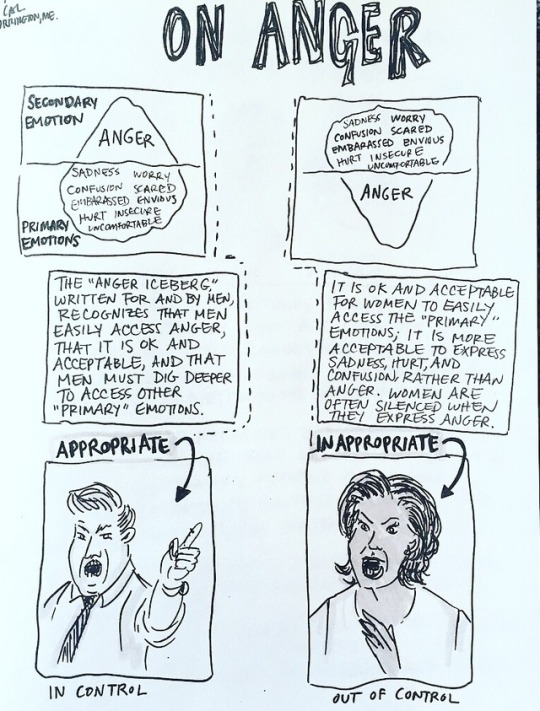 CAL
ON ANGER
SECONDARY
EMOTION
ANGER
SADNESS WORRY
CONFUSION SCARED
EMBARASSED ENVIOUS
HURT INSECURE
UNCOMFORTABLE
PRIMARY
EMOTIONS
THE "ANGER ICEBERG,"
WRITTEN FOR AND BY MEN,
RECOGNIZES THAT MEN
EASILY ACCESS ANGER,
THAT IT IS OK AND
ACCEPTABLE, AND THAT
MEN MUST DIG DEEPER
TO ACCESS OTHER
"PRIMARY" EMOTIONS.
APPROPRIATE
IN CONTROL
SADNESS WORRY
CONFUSION SCARED
EMBARASSED ENVIOUS
HURT INSECURE
UNCOMFORTABLE
ANGER
IT IS OK AND ACCEPTABLE
FOR WOMEN TO EASILY
ACCESS THE "PRIMARY"
EMOTIONS; IT IS MORE
ACCEPTABLE TO EXPRESS
SADNESS, HURT, AND
CONFUSION, RATHER THAN
ANGER. WOMEN ARE
OFTEN SILENCED WHEN
THEY EXPRESS ANGER.
INAPPROPRIATE
OUT OF CONTROL